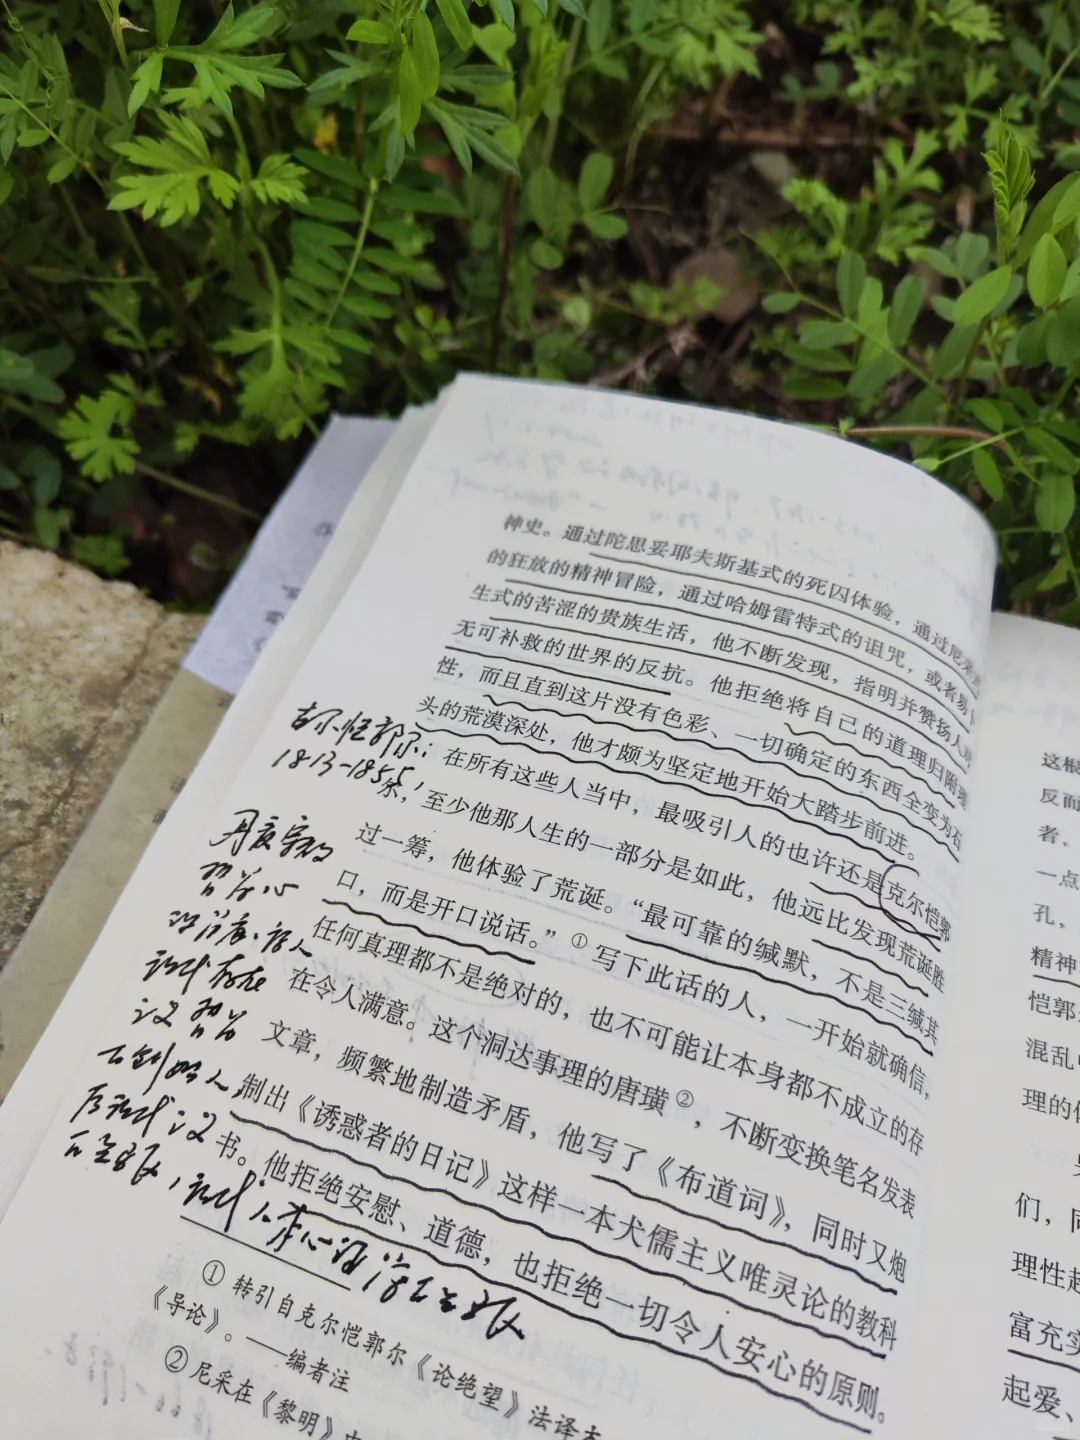 神史。通过陀思妥耶夫斯基式的死囚体验，通过尼采
的狂放的精神冒险，通过哈姆雷特式的诅咒，或者易卜
生式的苦涩的贵族生活，他不断发现，指明并赞扬人
无可补救的世界的反抗。他拒绝将自己的道理归附理
性，而且直到这片没有色彩、一切确定的东西全变为石
头的荒漠深处，他才颇为坚定地开始大踏步前进。
在所有这些人当中，最吸引人的也许还是克尔恺郭
尔，至少他那人生的一部分是如此，他远比发现荒诞胜
过一筹，他体验了荒诞。“最可靠的缄默，不是三缄其
口，而是开口说话。”①写下此话的人，一开始就确信，
任何真理都不是绝对的，也不可能让本身都不成立的存
在令人满意。这个洞达事理的唐璜②，不断变换笔名发表
文章，频繁地制造矛盾，他写了《布道词》，同时又炮
制出《诱惑者的日记》这样一本犬儒主义唯灵论的教科
书。他拒绝安慰、道德，也拒绝一切令人安心的原则。
① 转引自克尔恺郭尔《论绝望》法译本
《导论》。——编者注
② 尼采在《黎明》中
1813-1855
丹麦宗教
哲学心
存在
哲学
这根
反而
者，
一点
孔，
精神
恺郭
混乱
理的
们，同
理性起
富充实
起爱、